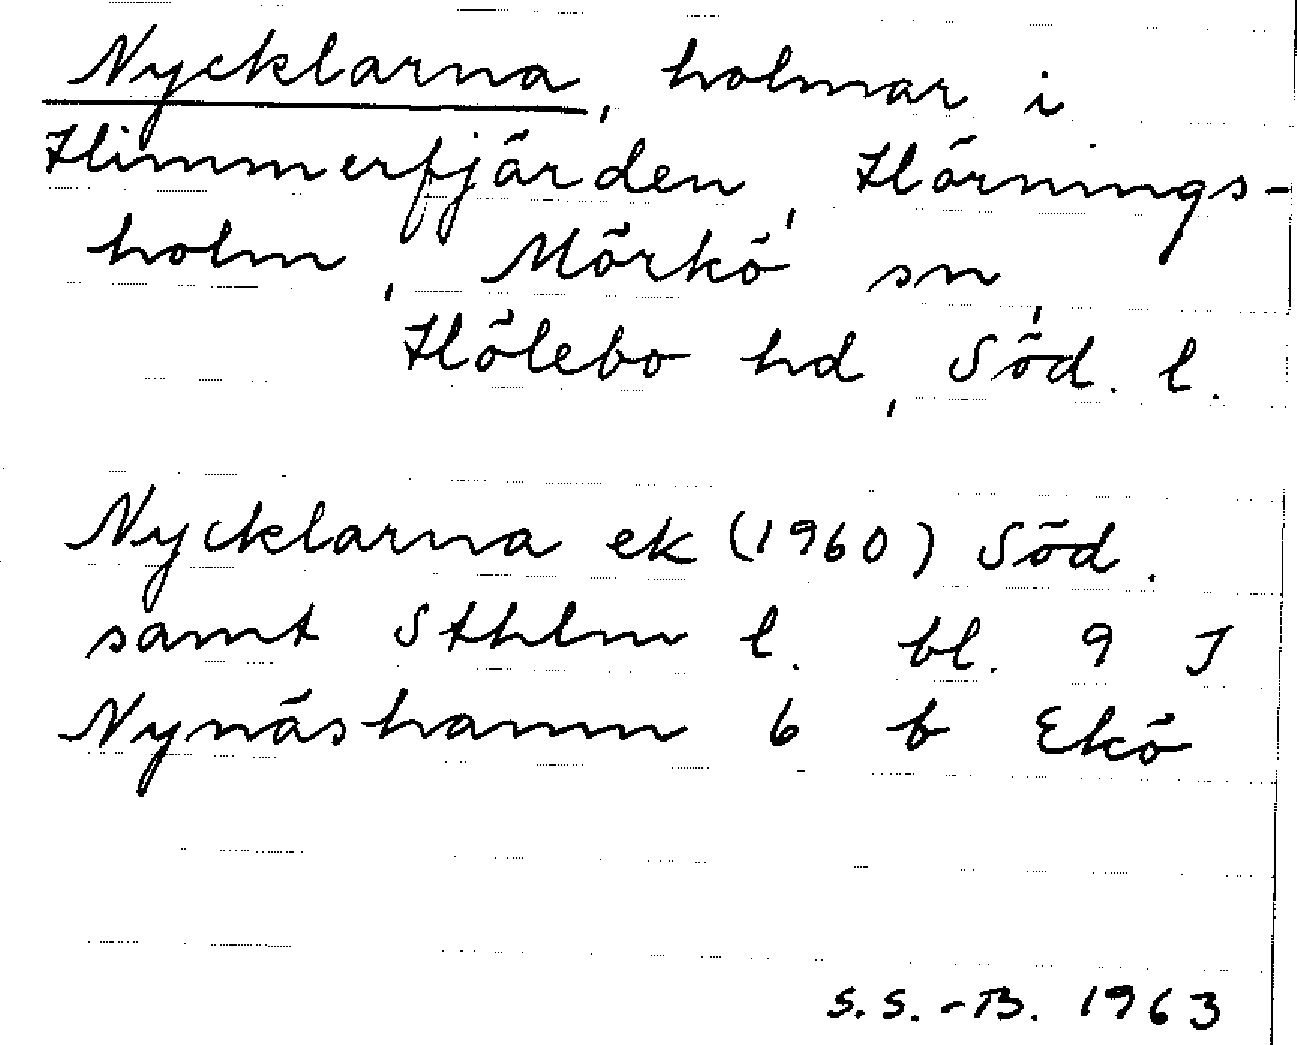 Nycklarna, holmar i
Himmerfjärden, Hörnings-
holm, Mörkö sn,
Hölebo hd, Söd. l.
Nycklarna ek (1960) Söd.
samt Sthlm l. bl. 9 J
Nynäshamn 6 b Ekö
S.S.-B. 1963